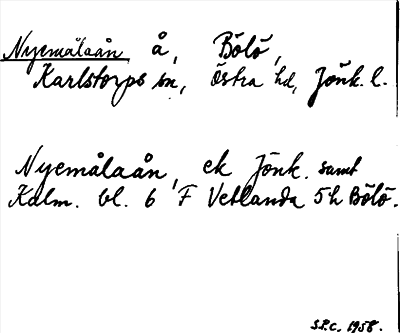 Nyemålaån å, Bölö,
Karlstorps sn, Östra hd, Jönk. l.
Nyemålaån, ek Jönk. samt
Kalm. bl. 6 F Vetlanda 5h Bölö.
S.P.C. 1958.